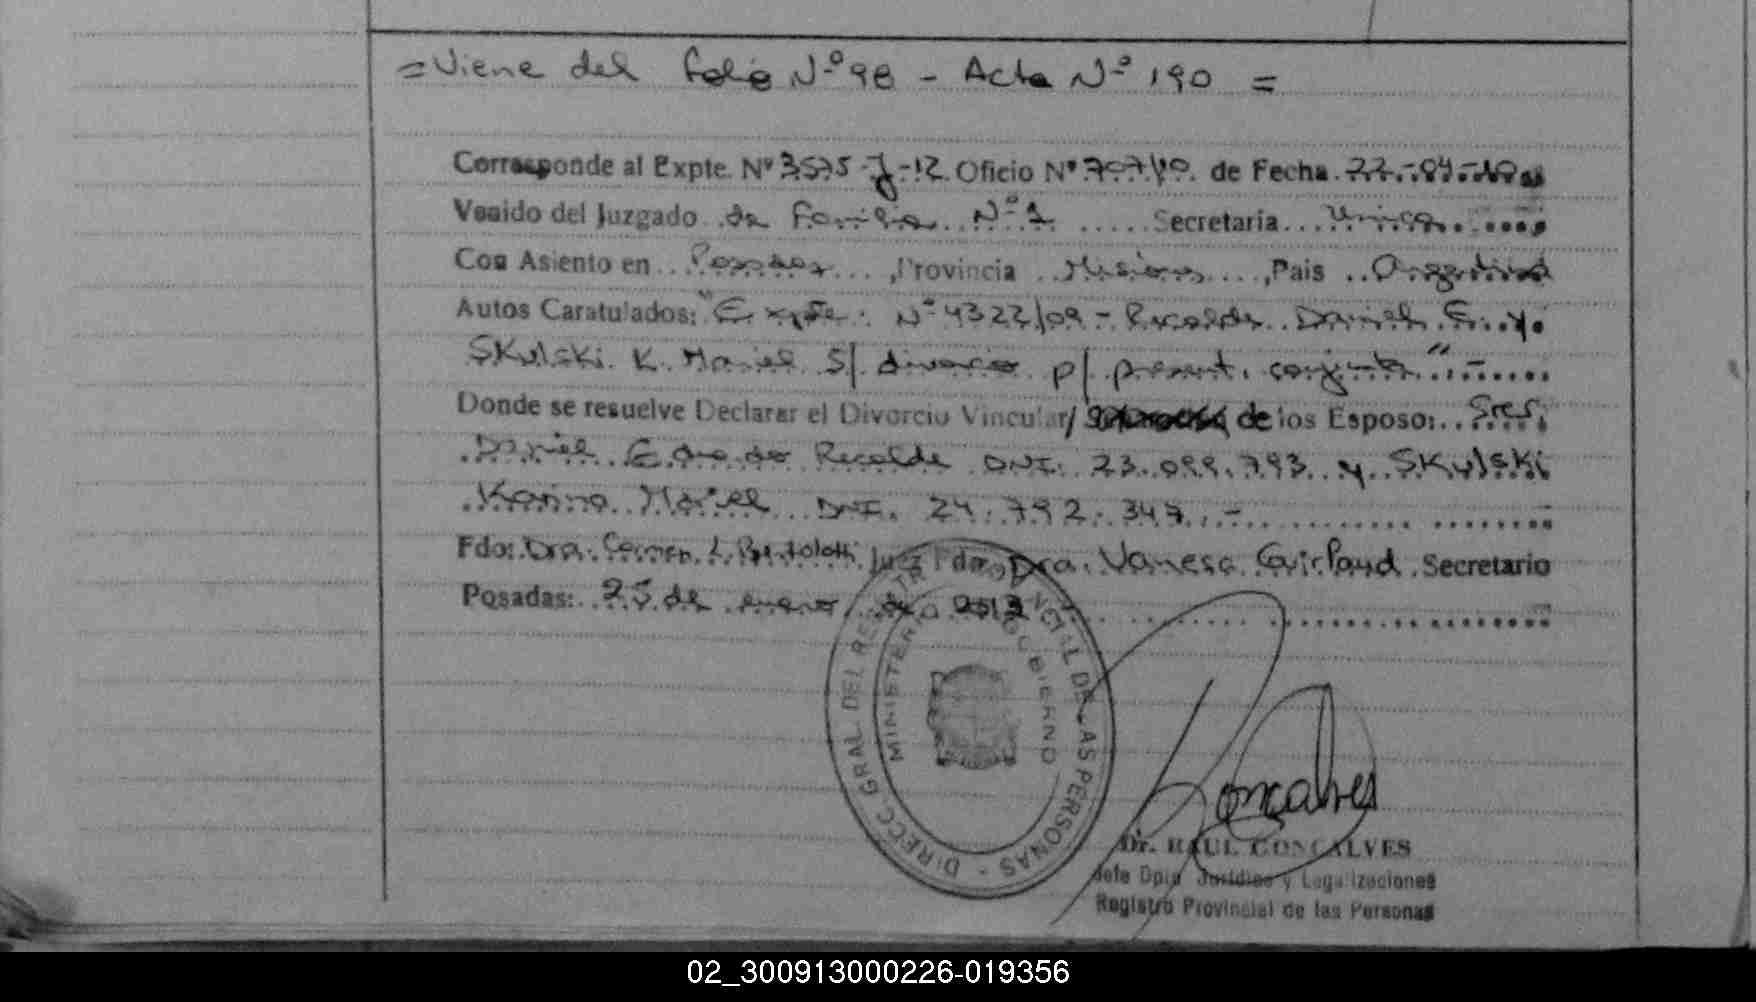 = Viene del folio Nº 98 - Acta Nº 190 =
Corresponde al Expte. Nº 3575-J-12 Oficio Nº 707/10 de Fecha 22-04-10
Venido del Juzgado de Familia Nº 1 Secretaria Unica
Con Asiento en Posadas, Provincia Misiones, Pais Argentina
Autos Caratulados: "Expte. Nº 4322/09 - Recalde Daniel E. y
Skulski K. Mariel S/ divorcio p/ present. conjunta".-
Donde se resuelve Declarar el Divorcio Vincular/ de los Esposo: Sres.
Daniel Eduardo Recalde DNI: 23.099.793 y Skulski
Karina Mariel DNI. 24.792.347.-
Fdo: Dra. Carmen L. Bertolotti Juez Fdo. Dra. Vanesa Guirlaud Secretario
Posadas: 25 de enero de 2013
DIRECC. GRAL. DEL REGISTRO PROVINCIAL DE LAS PERSONAS -
MINISTERIO GOBIERNO
Goncalves
Dr. RAUL GONCALVES
Jefe Dpto Jurídico y Legalizaciones
Registro Provincial de las Personas
02_300913000226-019356